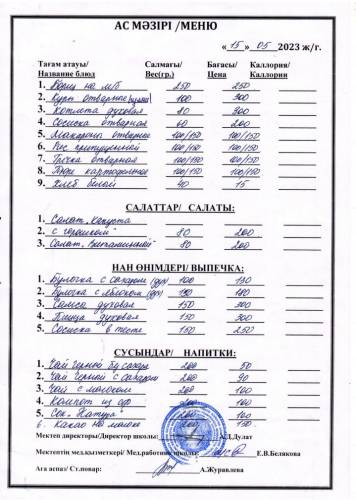 АС МӘЗІРІ /МЕНЮ
« 15 » 05 2023 ж/г.
Тағам атауы/ Салмағы/ Бағасы/ Каллория/
Название блюд Вес(гр.) Цена Каллории
1. Борщ на м/б 250 250
2. Куры отварные 100 300
3. Котлета духовая 80 300
4. Сосиска отварная 60 200
5. Макароны отварные 100/150 100/150
6. Рис припущенный 100/150 100/150
7. Гречка отварная 100/150 100/150
8. Пюре картофельное 100/150 100/150
9. Хлеб белый 40 15
САЛАТТАР/ САЛАТЫ:
1. Салат „Капуста
2. с горошком" 80 200
3. Салат „Витаминный" 80 200
НАН ӨНІМДЕРІ/ ВЫПЕЧКА:
1. Булочка с сахаром 100 130
2. Булочка с яблоком 130 180
3. Самса духовая 150 300
4. Пицца духовая 150 300
5. Сосиска в тесте 150 250
СУСЫНДАР/ НАПИТКИ:
1. Чай черный без сахара 200 50
2. Чай черный с сахаром 200 90
3. Чай с молоком 200 100
4. Компот из с/ф 200 100
5. Сок „Натура" 200 100
6. Какао на молоке 200 150
Мектеп директоры/Директор школы: А.Дулат
Мектептің мед.қызметкері/ Мед.работник школы: Е.В.Белякова
Аға аспаз/ Ст.повар: А.Журавлева